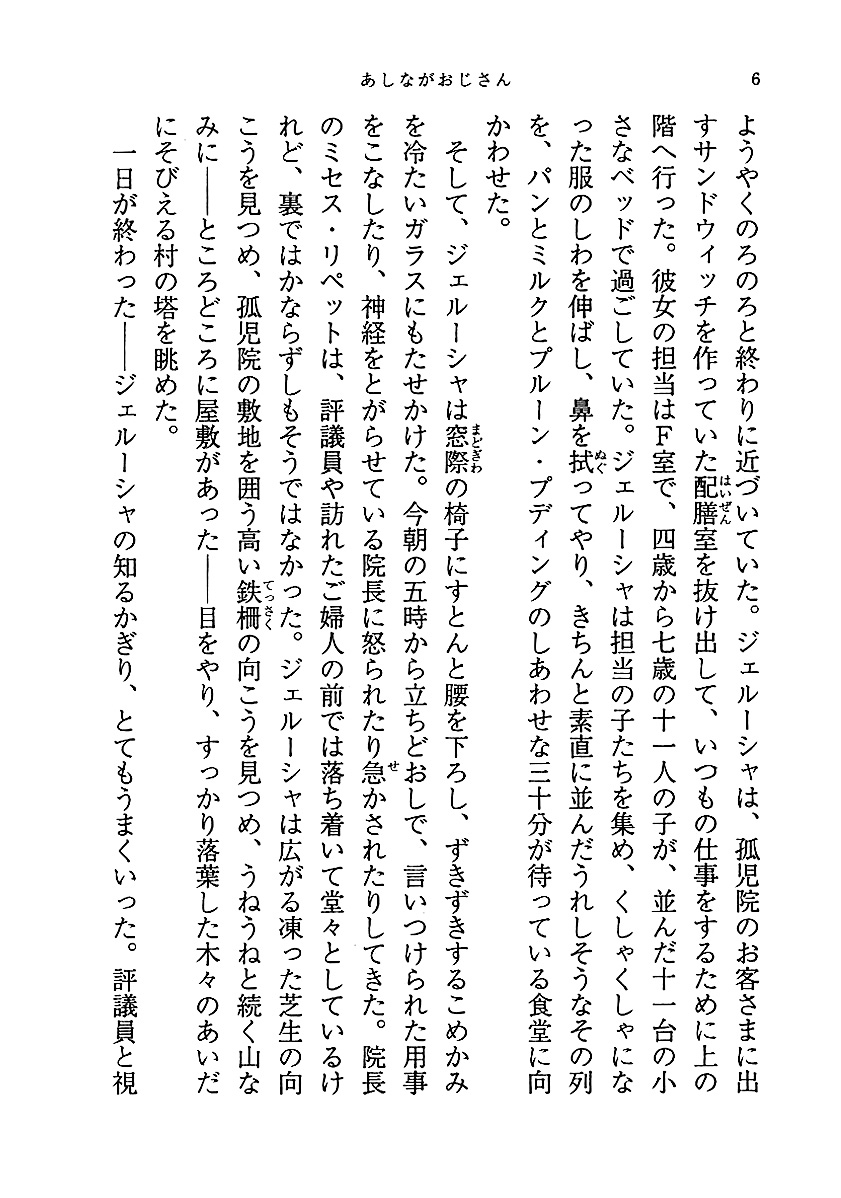 あしながおじさん
6
ようやくのろのろと終わりに近づいていた。ジェルーシャは、孤児院のお客さまに出
すサンドウィッチを作っていた配膳室を抜け出して、いつもの仕事をするために上の
はいぜん
階へ行った。彼女の担当はF室で、四歳から七歳の十一人の子が、並んだ十一台の小
さなベッドで過ごしていた。ジェルーシャは担当の子たちを集め、くしゃくしゃにな
った服のしわを伸ばし、鼻を拭ってやり、きちんと素直に並んだうれしそうなその列
ぬぐ
を、パンとミルクとプルーン・プディングのしあわせな三十分が待っている食堂に向
かわせた。
そして、ジェルーシャは窓際の椅子にすとんと腰を下ろし、ずきずきするこめかみ
まどぎわ
を冷たいガラスにもたせかけた。今朝の五時から立ちどおしで、言いつけられた用事
をこなしたり、神経をとがらせている院長に怒られたり急かされたりしてきた。院長
せ
のミセス・リペットは、評議員や訪れたご婦人の前では落ち着いて堂々としているけ
れど、裏ではかならずしもそうではなかった。ジェルーシャは広がる凍った芝生の向
こうを見つめ、孤児院の敷地を囲う高い鉄柵の向こうを見つめ、うねうねと続く山な
てっさく
みに――ところどころに屋敷があった――目をやり、すっかり落葉した木々のあいだ
にそびえる村の塔を眺めた。
一日が終わった――ジェルーシャの知るかぎり、とてもうまくいった。評議員と視